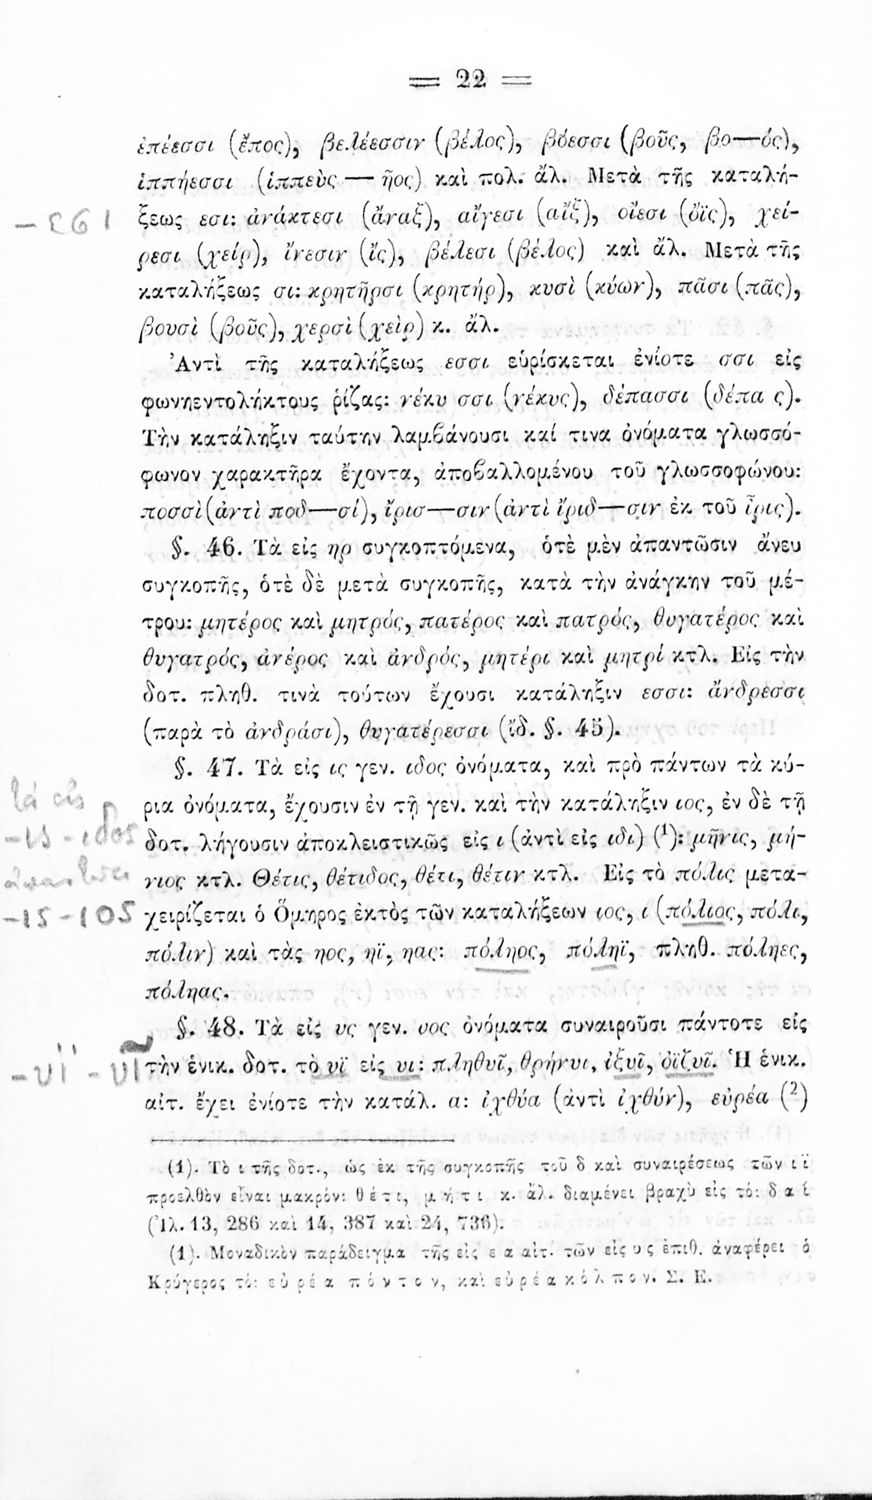 = 22 =
ἐπέεσσι (ἔπος), βελέεσσιν (βέλος), βόεσσι (βοῦς, βο—ός),
ἱππήεσσι (ἱππεὺς — ῆος) καὶ πολ. ἄλ. Μετὰ τῆς καταλή-
ξεως εσι: ἀνάκτεσι (ἄναξ), αἴγεσι (αἴξ), οἴεσι (ὄϊς), χεί-
ρεσι (χείρ), ἴνεσιν (ἴς), βέλεσι (βέλος) καὶ ἄλ. Μετὰ τῆς
καταλήξεως σι: κρητῆρσι (κρητήρ), κυσὶ (κύων), πᾶσι (πᾶς),
βουσὶ (βοῦς), χερσὶ (χεὶρ) κ. ἄλ.
Ἀντὶ τῆς καταλήξεως εσσι εὑρίσκεται ἐνίοτε σσι εἰς
φωνηεντολήκτους ῥίζας: νέκυ σσι (νέκυς), δέπασσι (δέπα ς).
Τὴν κατάληξιν ταύτην λαμβάνουσι καί τινα ὀνόματα γλωσσό-
φωνον χαρακτῆρα ἔχοντα, ἀποβαλλομένου τοῦ γλωσσοφώνου:
ποσσὶ (ἀντὶ ποδ—σί), ἴρισ—σιν (ἀντὶ ἴριδ—σιν ἐκ τοῦ ἶρις).
§. 46. Τὰ εἰς ηρ συγκοπτόμενα, ὁτὲ μὲν ἀπαντῶσιν ἄνευ
συγκοπῆς, ὁτὲ δὲ μετὰ συγκοπῆς, κατὰ τὴν ἀνάγκην τοῦ μέ-
τρου: μητέρος καὶ μητρός, πατέρος καὶ πατρός, θυγατέρος καὶ
θυγατρός, ἀνέρος καὶ ἀνδρός, μητέρι καὶ μητρί κτλ. Εἰς τὴν
δοτ. πληθ. τινὰ τούτων ἔχουσι κατάληξιν εσσι: ἄνδρεσσι
(παρὰ τὸ ἀνδράσι), θυγατέρεσσι (ἴδ. §. 45).
§. 47. Τὰ εἰς ις γεν. ιδος ὀνόματα, καὶ πρὸ πάντων τὰ κύ-
ρια ὀνόματα, ἔχουσιν ἐν τῇ γεν. καὶ τὴν κατάληξιν ιος, ἐν δὲ τῇ
δοτ. λήγουσιν ἀποκλειστικῶς εἰς ι (ἀντὶ εἰς ιδι) (1): μῆνις, μή-
νιος κτλ. Θέτις, θέτιδος, θέτι, θέτιν κτλ. Εἰς τὸ πόλις μετα-
χειρίζεται ὁ Ὅμηρος ἐκτὸς τῶν καταλήξεων ιος, ι (πόλιος, πόλι,
πόλιν) καὶ τὰς ηος, ηϊ, ηας: πόληος, πόληϊ, πληθ. πόληες,
πόληας.
§. 48. Τὰ εἰς υς γεν. υος ὀνόματα συναιροῦσι πάντοτε εἰς
τὴν ἑνικ. δοτ. τὸ υϊ εἰς υι: πληθυῖ, θρήνυι, ἰξυῖ, ὀϊζυῖ. Ἡ ἑνικ.
αἰτ. ἔχει ἐνίοτε τὴν κατάλ. α: ἰχθύα (ἀντὶ ἰχθύν), εὐρέα (2)
(1). Τὸ ι τῆς δοτ., ὡς ἐκ τῆς συγκοπῆς τοῦ δ καὶ συναιρέσεως τῶν ι ϊ
προελθὸν εἶναι μακρόν: θέτι, μήτι κ. ἄλ. διαμένει βραχὺ εἰς τό: δαΐ
(Ἰλ. 13, 286 καὶ 14, 387 καὶ 24, 736).
(1). Μοναδικὸν παράδειγμα τῆς εἰς εα αἰτ. τῶν εἰς υς ἐπιθ. ἀναφέρει ὁ
Κρύγερος τό: εὐρέα πόντον, καὶ εὐρέα κόλπον. Σ. Ε.
-εσι
τά εἰς
-ις -ιδος
-ις -ιος
-υϊ -υῖ